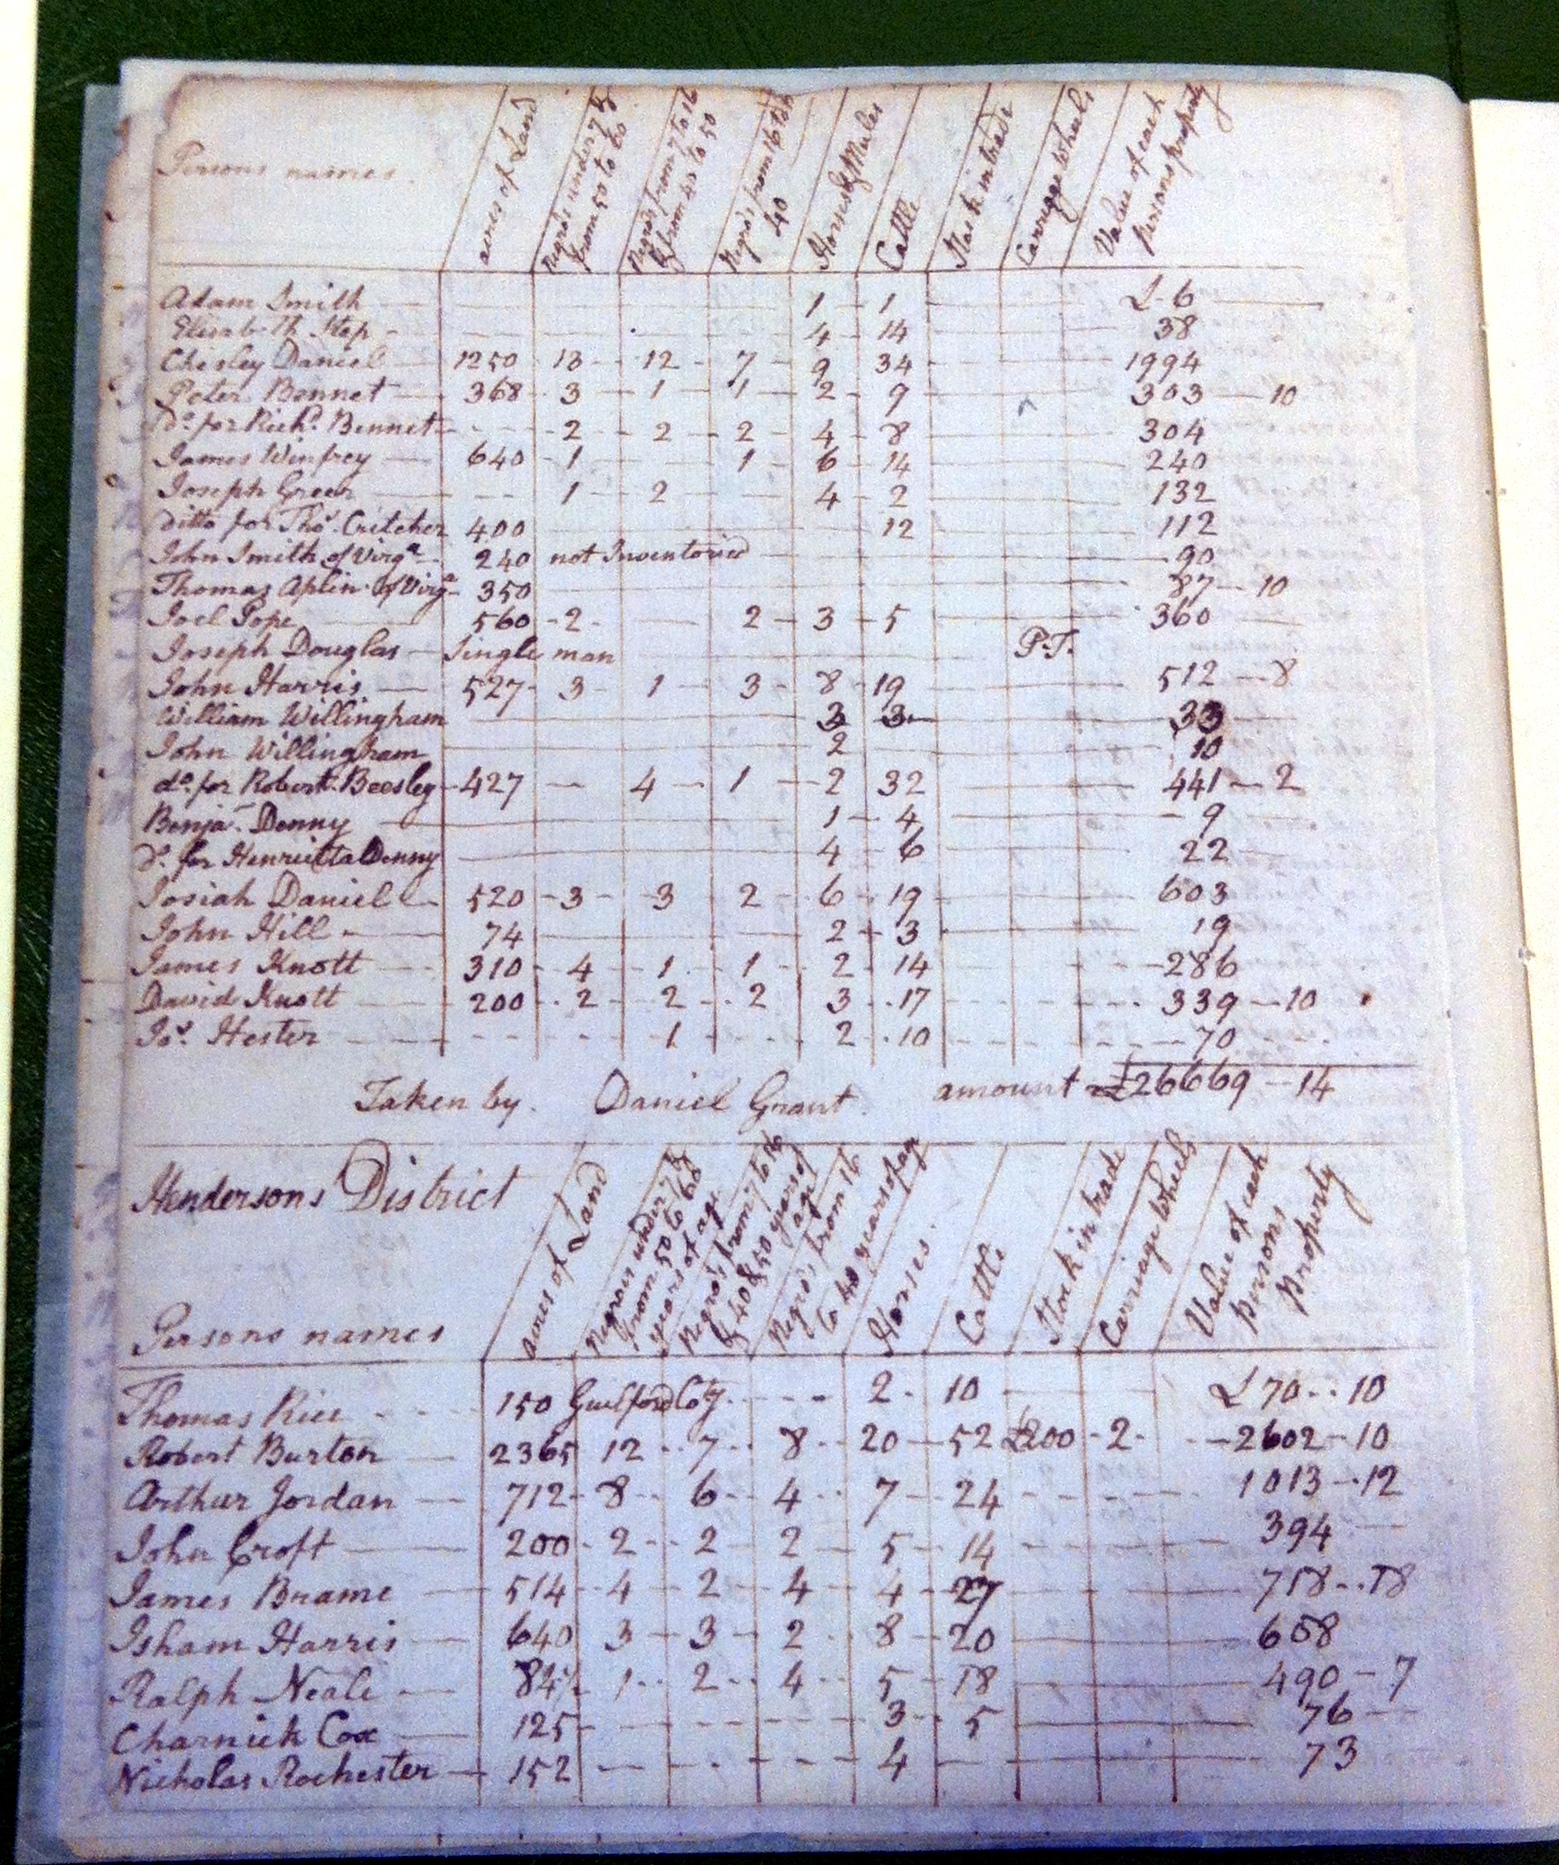 Persons names. acres of Land Negros under 7 & from 50 to 60 Negros from 7 to 16 & from 40 to 50 Negros from 16 to 40 Horses & Mules Cattle Stock in trade Carriage wheels Value of each persons property
Adam Smith 1 1 £ 6
Elizabeth Step 4 14 38
Chesley Daniel 1250 13 12 7 9 34 1994
Peter Bennet 368 3 1 1 2 9 303 10
Do. for Richd. Bennet 2 2 2 4 8 304
James Winfrey 640 1 1 6 14 240
Joseph Greer 1 2 4 2 132
Ditto for Thos. Critcher 400 12 112
John Smith of Virga. 240 not Inventoried 90
Thomas Aplin of Virga. 350 87 10
Joel Pope 560 2 2 3 5 360
Joseph Douglas Single man P.T.
John Harris 527 3 1 3 8 19 512 8
William Willingham 3 3 33
John Willingham 2 10
do. for Robert Beesley 427 4 1 2 32 441 2
Benja. Denny 1 4 9
do. for Henrietta Denny 4 6 22
Josiah Daniel 520 3 3 2 6 19 603
John Hill 74 2 3 19
James Knott 310 4 1 1 2 14 286
David Knott 200 2 2 2 3 17 339 10
Jos. Hester 1 2 10 70
Taken by Daniel Grant. amount £26669 14
Hendersons District
Persons names acres of Land Negros under 7 & from 50 to 60 years of age Negros from 7 to 16 & 40 & 50 years of age Negros from 16 to 40 years of age Horses. Cattle Stock in trade Carriage Wheels Value of each persons Property
Thomas Rice 150 Guilford Coty. 2 10 £ 70 10
Robert Burton 2365 12 7 8 20 52 £200 2 2602 10
Arthur Jordan 712 8 6 4 7 24 1013 12
John Croft 200 2 2 2 5 14 394
James Brame 514 4 2 4 4 27 758 18
Isham Harris 640 3 3 2 8 20 658
Ralph Neale 84 1 2 4 5 18 490 7
Charnick Cox 125 3 5 76
Nicholas Rochester 152 4 73